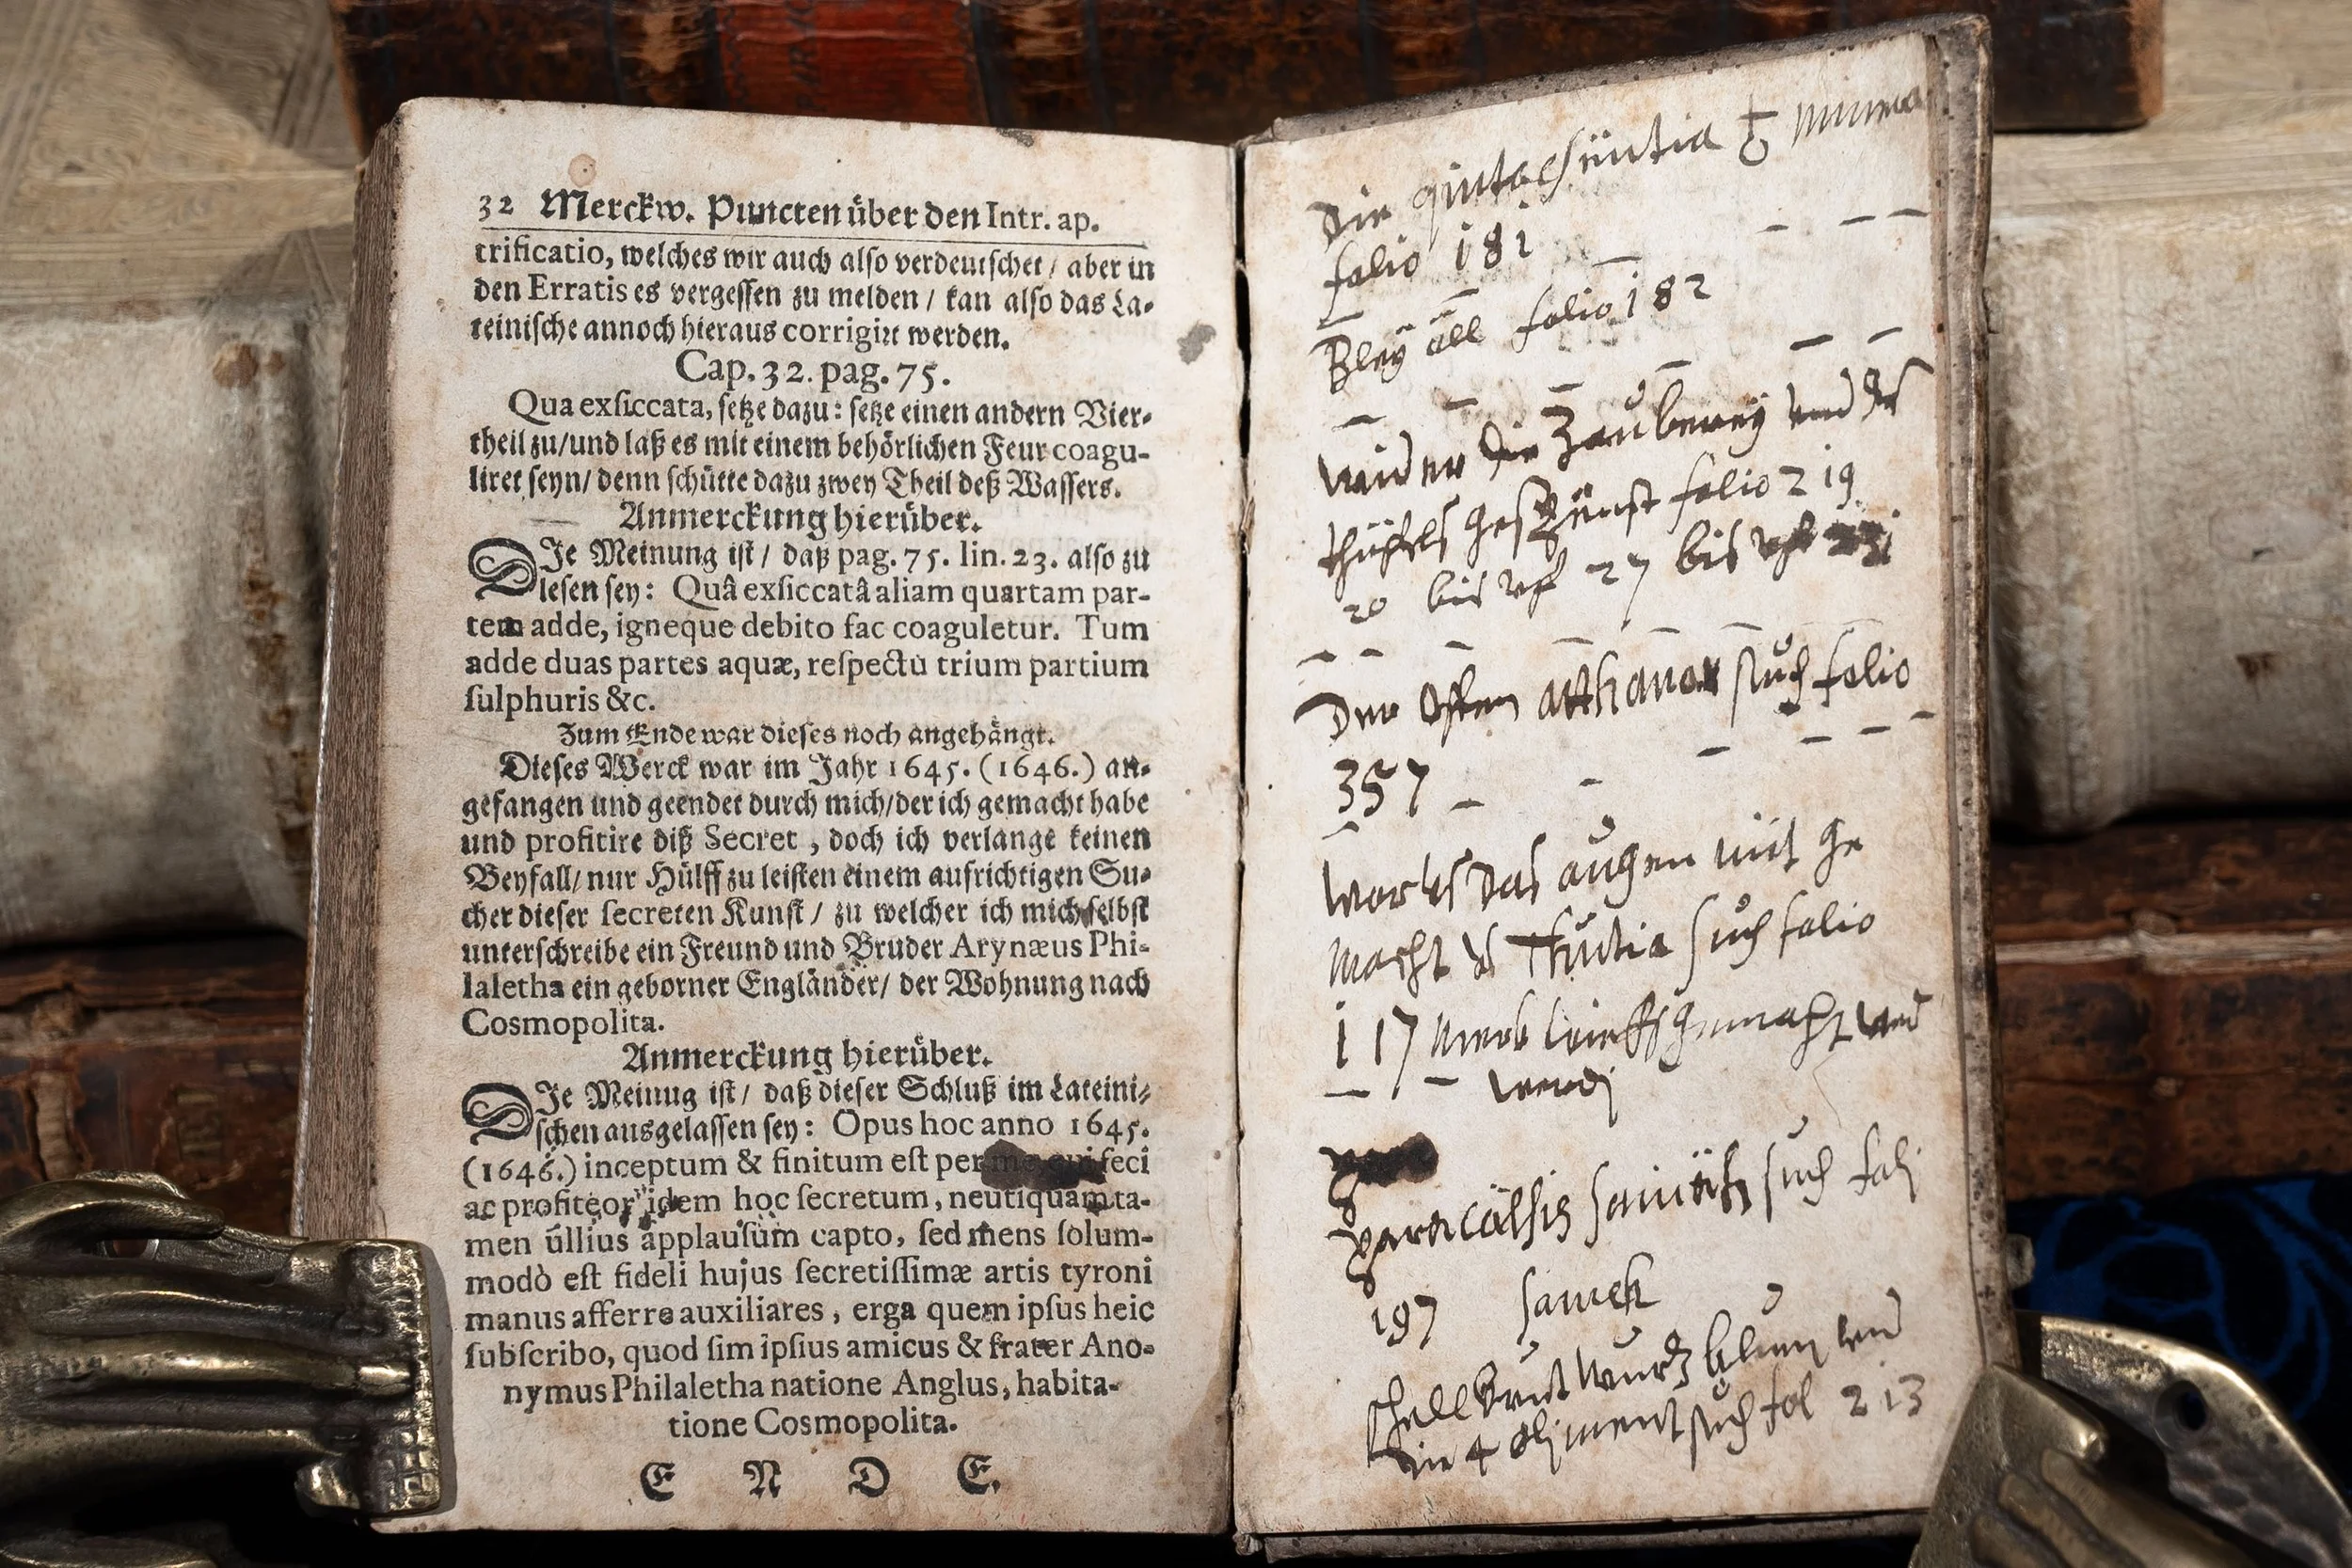 32 Merckw. Puncten über den Intr. ap.
trificatio, welches wir auch also verdeutschet / aber in
den Erratis es vergessen zu melden / kan also das La-
teinische annoch hieraus corrigirt werden.
Cap. 32. pag. 75.
Qua exsiccata, setze dazu: setze einen andern Vier-
theil zu/und laß es mit einem behörlichen Feur coagu-
liret seyn/ denn schütte dazu zwey Theil deß Wassers.
Anmerckung hierüber.
DIe Meinung ist / daß pag. 75. lin. 23. also zu
lesen sey: Quâ exsiccatâ aliam quartam par-
tem adde, igneque debito fac coaguletur. Tum
adde duas partes aquæ, respectu trium partium
sulphuris &c.
Zum Ende war dieses noch angehängt.
Dieses Werck war im Jahr 1645. (1646.) an-
gefangen und geendet durch mich/der ich gemacht habe
und profitire diß Secret, doch ich verlange keinen
Beyfall/ nur Hülff zu leisten einem aufrichtigen Su-
cher dieser secreten Kunst / zu welcher ich mich selbst
unterschreibe ein Freund und Bruder Arynæus Phi-
laletha ein geborner Engländer/ der Wohnung nach
Cosmopolita.
Anmerckung hierüber.
DIe Meinug ist / daß dieser Schluß im Lateini-
schen ausgelassen sey: Opus hoc anno 1645.
(1646.) inceptum & finitum est per me qui feci
ac profiteor idem hoc secretum, neutiquam ta-
men ullius applausum capto, sed mens solum-
modò est fideli hujus secretissimæ artis tyroni
manus afferre auxiliares, erga quem ipsus heic
subscribo, quod sim ipsius amicus & frater Ano-
nymus Philaletha natione Anglus, habita-
tione Cosmopolita.
E N D E.
Die
folio 181
Bleÿ öll folio 182
wider die Zauberey und des
folio 219
20 bis vf 27 bis vf
Der Ofen atthanor such folio
357
das augen mit ge
macht such folio
117
such
197 samech
wurtz blum und
die 4 such fol 213